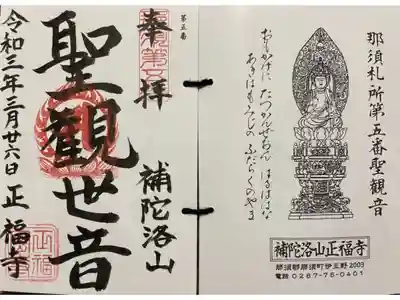 那須札所第五番聖観音
おもかげに たつかんぜおん はるははな
あきはもみじの ふだらくのやま
補陀洛山正福寺
那須郡那須町伊王野2003
電話 0287-75-0401
第五番
奉拝 補陀洛山
聖觀世音
令和三年三月廿六日 正福寺